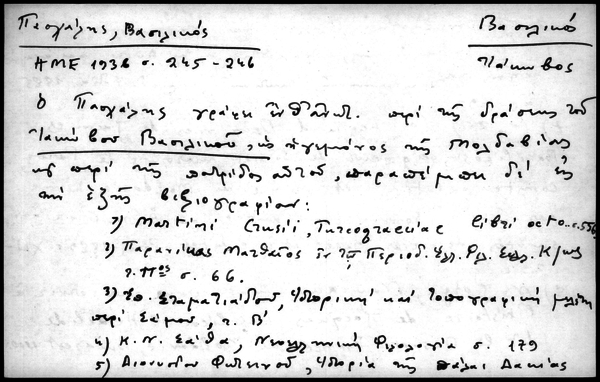 Πασχάλης, Βασιλικός
Βασιλικός
ΑΜΕ 1936 σ. 245-246
Ἰάκωβος
ὁ Πασχάλης γράφει ἐνταῦθα περὶ τῆς δράσεως τοῦ
Ἰακώβου Βασιλικοῦ, ὡς ἡγεμόνος τῆς Μολδαβίας
καὶ περὶ τῆς πατρίδος αὐτοῦ, παραπέμπει δὲ εἰς
τὴν ἑξῆς βιβλιογραφίαν:
1) Martini Crusii, Turcograeciae libri octo
2) Παρανίκας Ματθαῖος ἐν Περιοδ. Ἑλλ. Φιλ. Συλλ. Κ/πως
σ. 66.
3) Σταματιάδου, Ἱστορικὴ καὶ τοπογραφικὴ μελέτη
περὶ Σάμου, τ. Β'
4) Κ. Ν. Σάθα, Νεοελληνικὴ Φιλολογία σ. 179
5) Διονυσίου Φωτεινοῦ, Ἱστορία τῆς πάλαι Δακίας